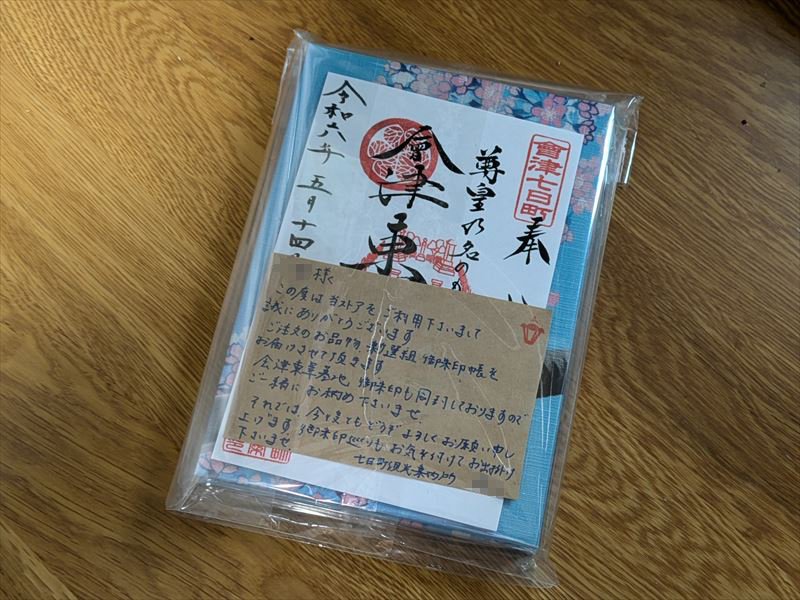 會津七日町
奉
尊皇の名のも
會津東
令和六年 五月十四
様
この度は当ストアをご利用下さいまして
誠にありがとうございます
ご注文のお品物 新選組 御朱印帳を
お届けさせて頂きます
会津東軍墓地 御朱印も同封しておりますので
ご一緒にお納め下さいませ
それでは、今後ともどうぞよろしくお願い申し
上げます。御朱印巡りもお気を付けてお出掛け
下さいませ
七日町観光案内所